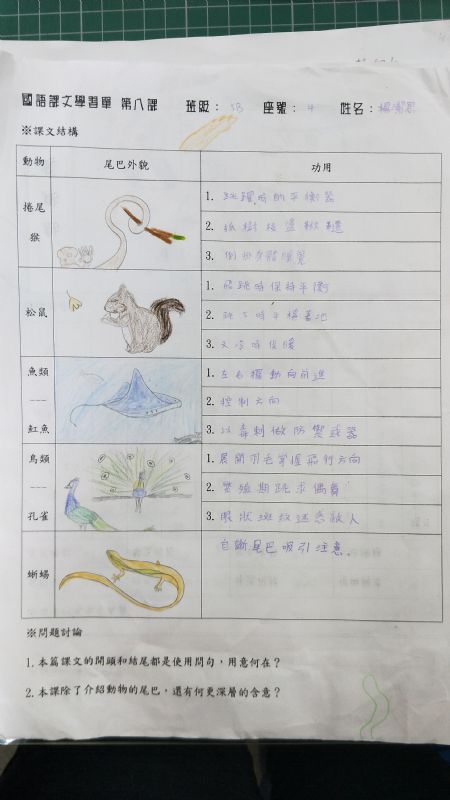 國語課文學習單 第八課 班級: 3B 座號: 4 姓名:
※課文結構
動物 尾巴外貌 功用
捲尾猴
1. 跳躍時的平衡器
2. 抓樹枝盪鞦韆
3.
松鼠
1. 跳時保持平衡
2. 跳下時平穩著地
3. 天冷時保暖
魚類
---
魟魚
1. 左右擺動向前進
2. 控制方向
3. 以毒刺做防禦武器
鳥類
---
孔雀
1. 展開羽毛掌握飛行方向
2. 繁殖期跳求偶舞
3. 眼狀斑紋迷惑敵人
蜥蜴
自斷尾巴吸引注意.
※問題討論
1.本篇課文的開頭和結尾都是使用問句,用意何在?
2.本課除了介紹動物的尾巴,還有何更深層的含意?